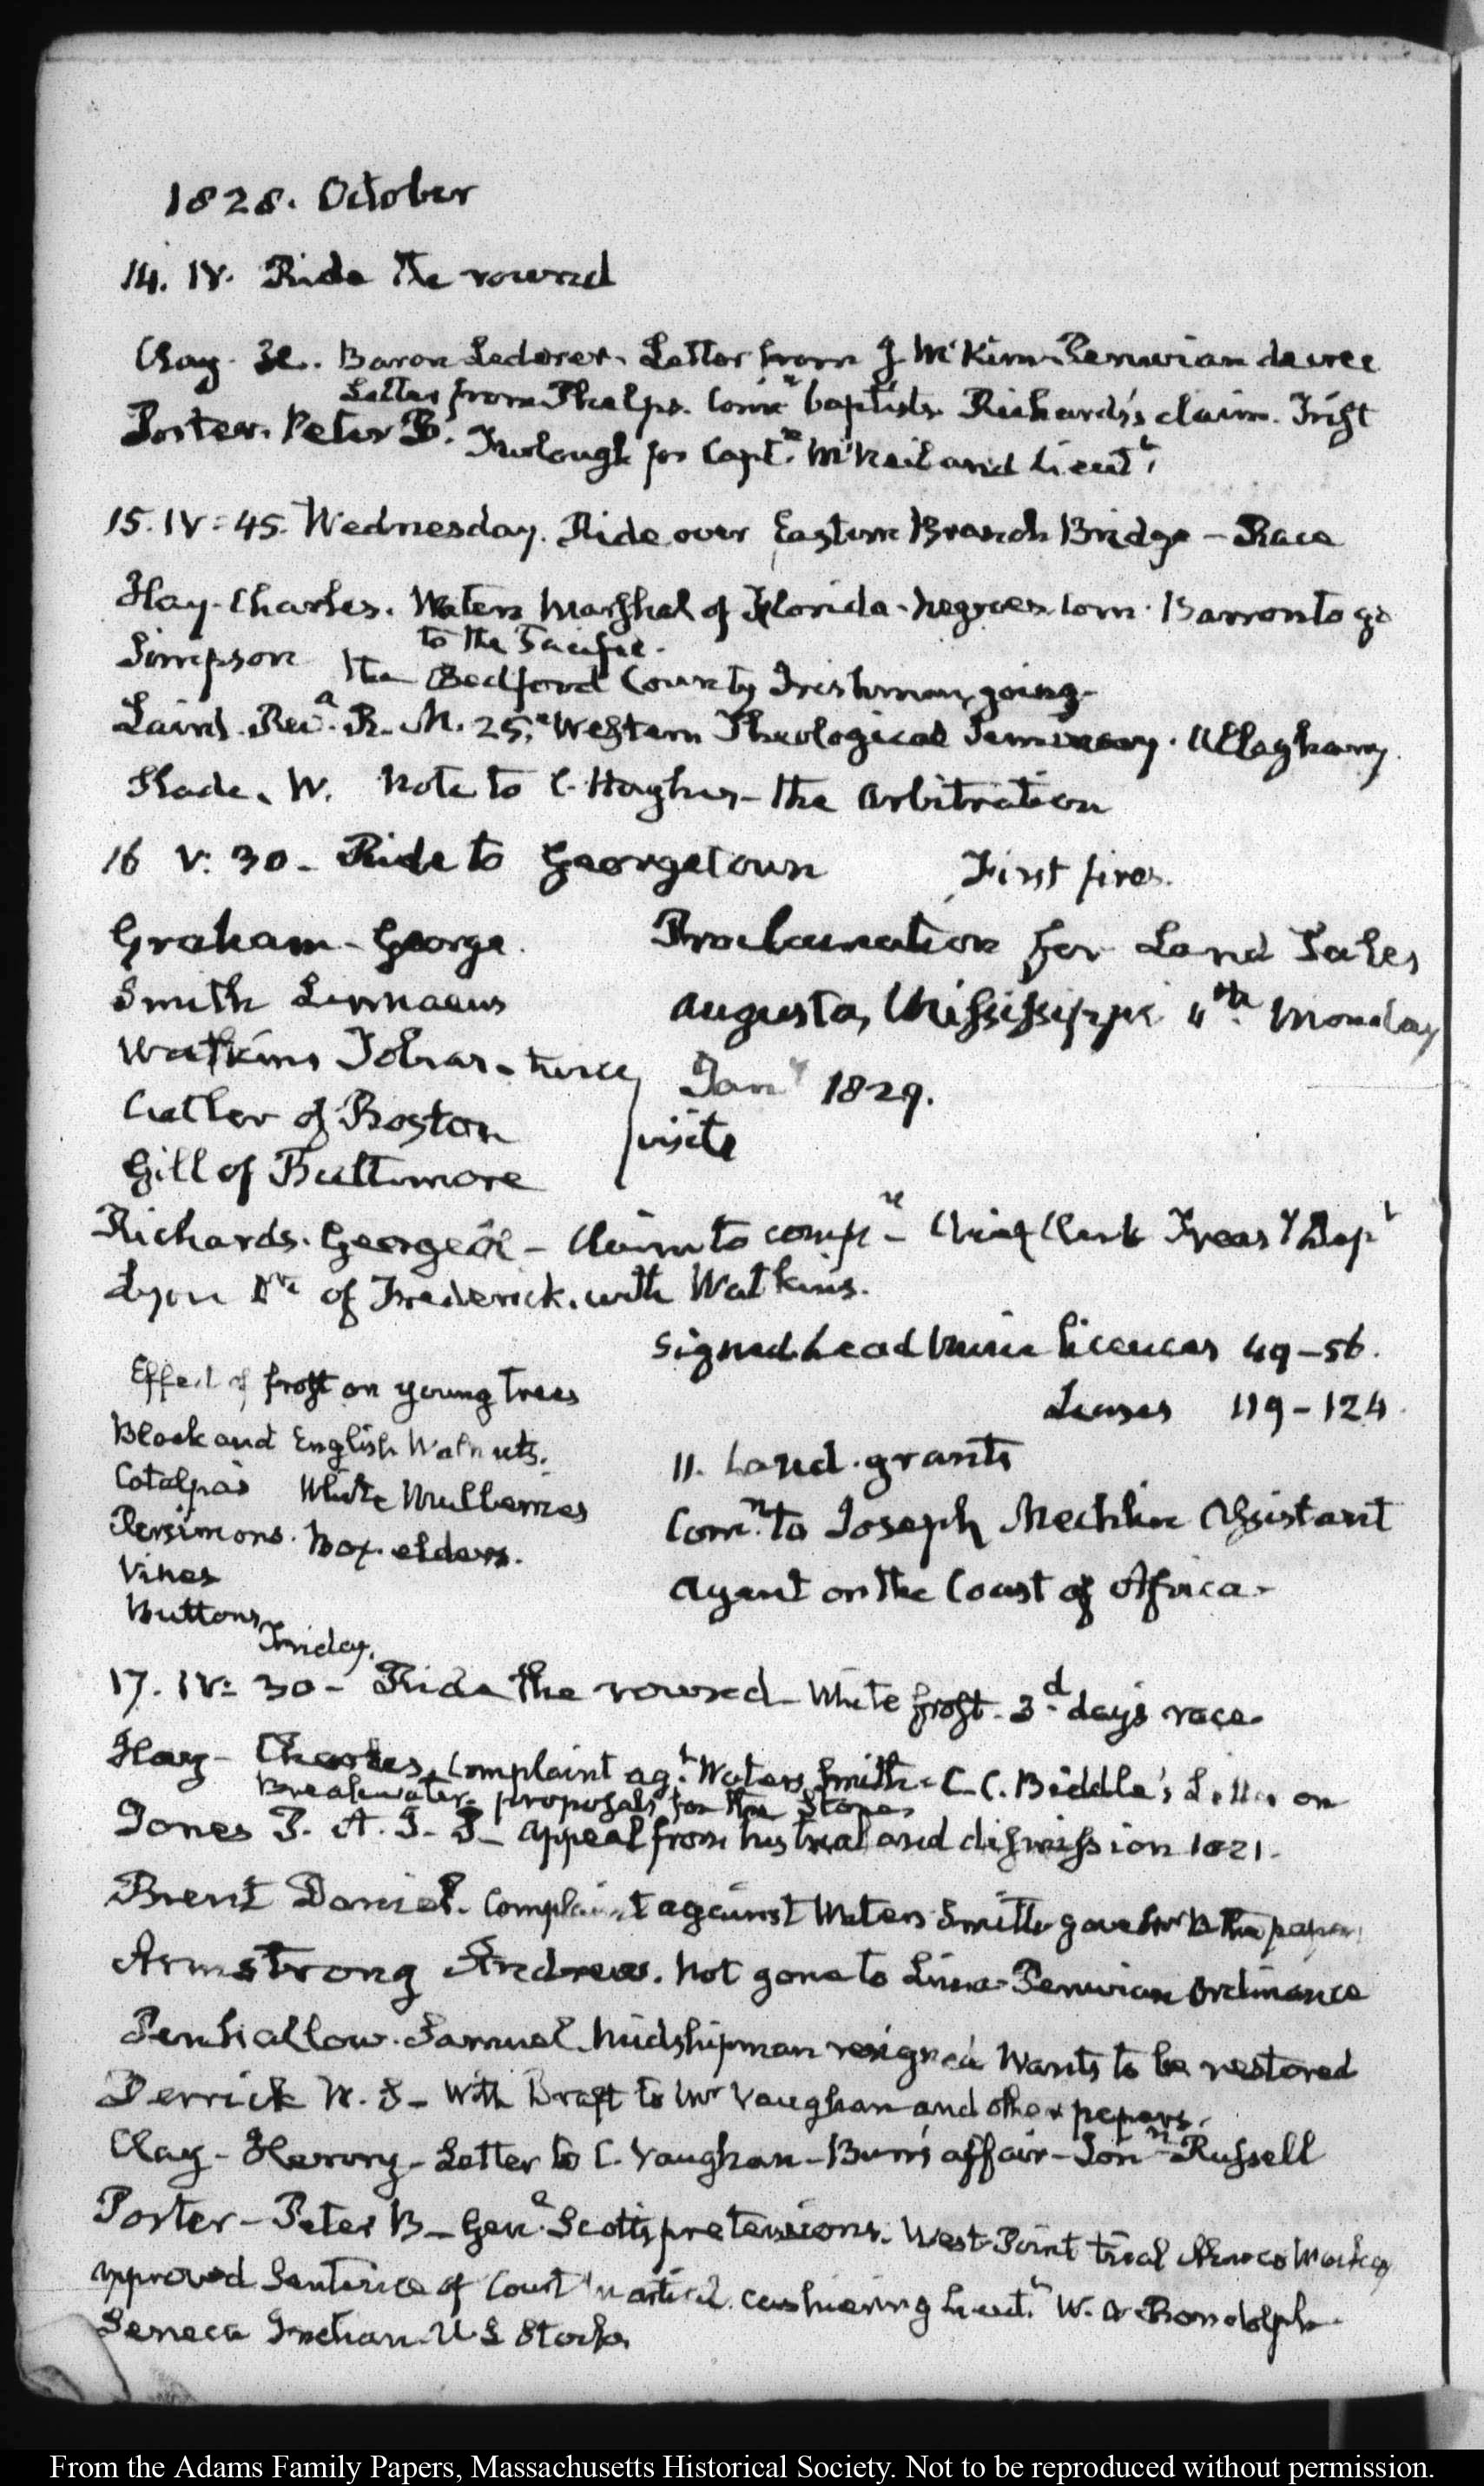 1828. October
14. IV. Ride the round
Clay. H. Baron Lederer. Letter from J McKim Peruvian decree
Letter from Phelps. Comn baptists. Richards's claim. Trist
Porter. Peter B. Furlough for Capt. McNeil and Lieutt
15. IV:45. Wednesday. Ride over Eastern Branch Bridge - Race
Hay. Charles. Waters Marshal of Florida. negroes. Com. Barron to go
to the Pacific.
Simpson the Bedford County Irishman, going.
Laird. Revd. R. M. 25. Western Theological Seminary. Alleghany.
Slade. W. Note to C. Hughes - the arbitration
16 V:30 - Ride to Georgetown First fires.
Graham - George. Proclamation for Land Sales
Smith Linnaeus Augusta, Mississippi 4th Monday
Watkins Tobias - twice Jany 1829.
Cutler of Boston visits
Gill of Baltimore
Richards. George - Claim to compn - Chief Clerk Treasy Dept
Lyon Dr. of Frederick. with Watkins.
Signed Lead mine licences 49-56.
Effect of frost on young trees
Leases 119-124.
Black and English Walnuts.
11. Land grants
Catalpas White Mulberries
Comn. to Joseph Mechlin Assistant
Persimons. Box elders.
Vines
Agent on the Coast of Africa -
Buttons
Friday.
17. IV:30 - Ride the round - White frost. 3d. day's race
Hay - Charles. Complaint agt. Waters Smith - C. C. Biddle's Letter on
Breakwater. proposals for the Stones
Jones P. A. J. P. - appeal from his trial and dismission 1821.
Brent Daniel. Complaint against Waters Smith gave Mr B the papers
Armstrong Andrew. not gone to Lima - Peruvian ordinance
Penhallow. Samuel. Midshipman resigned Wants to be restored
Derrick W. S - With Draft to Mr Vaughan and other papers.
Clay - Henry - Letter to C. Vaughan - Burn's affair - Jonn Russell
Porter - Peter B - Genl. Scott's pretensions. West Point trial
approved Sentence of Court martial. cashiering Lieutt. W. B Randolph
Seneca Indian U S Stocks